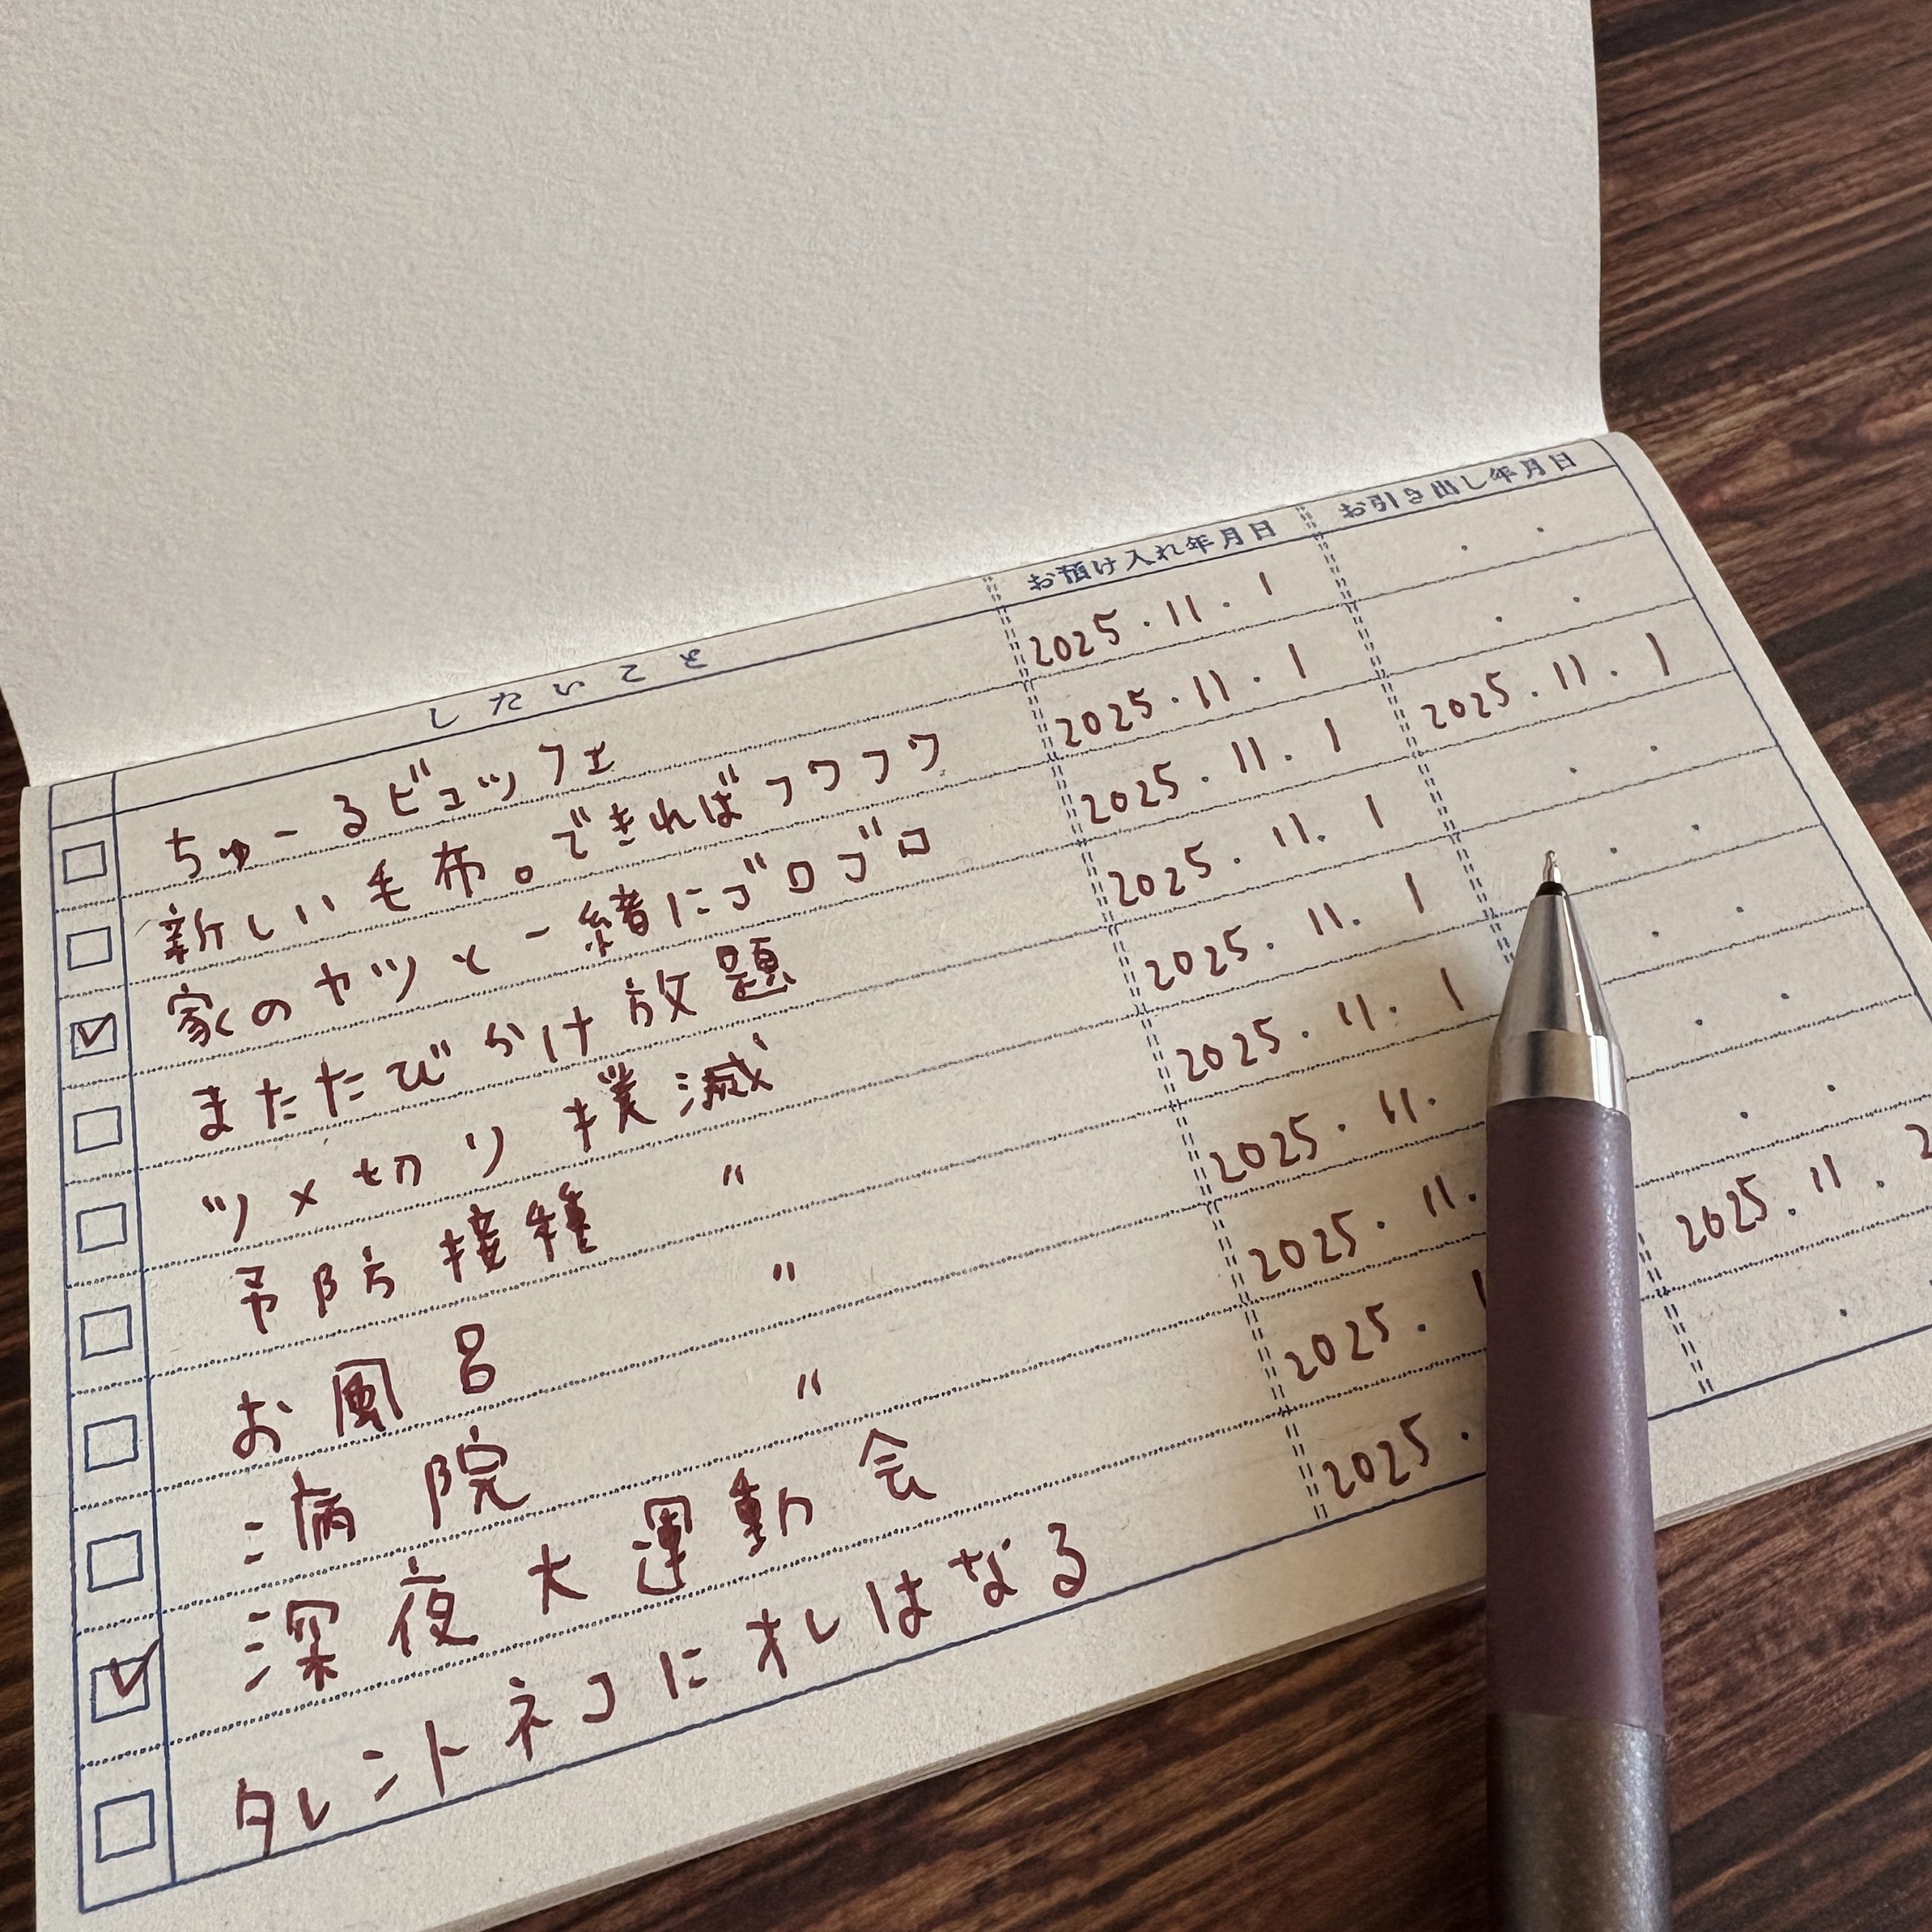 したいこと お預け入れ年月日 お引き出し年月日
ちゅーるビュッフェ 2025.11.1
新しい毛布。できればフワフワ 2025.11.1
家のヤツと一緒にゴロゴロ 2025.11.1 2025.11.1
またたびかけ放題 2025.11.1
ツメ切り撲滅 2025.11.1
予防接種 〃 2025.11.1
お風呂 〃 2025.11.
病院 〃 2025.11.
深夜大運動会 2025. 2025.11.2
タレントネコにオレはなる 2025.